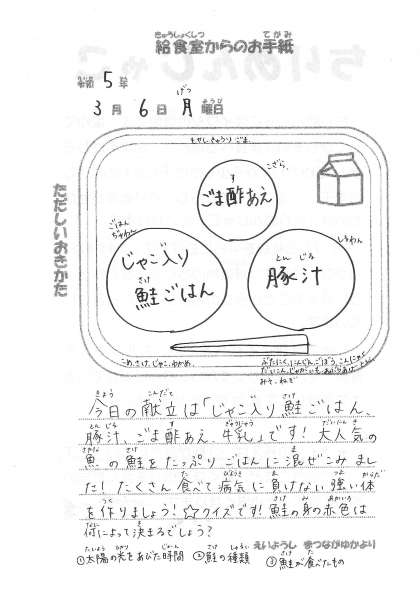 給食室からのお手紙
令和5年
3月6日月曜日
もやし、きゅうり、ごま
こざら
ごま酢あえ
ごはんぢゃわん
じゃこ入り鮭ごはん
しるわん
豚汁
ただしいおきかた
こめ、さけ、じゃこ、わかめ
ぶたにく、にんじん、ごぼう、こんにゃく
だいこん、じゃがいも、あぶらあげ、とうふ
みそ、ねぎ
今日の献立は「じゃこ入り鮭ごはん、
豚汁、ごま酢あえ、牛乳」です!大人気の
魚の鮭をたっぷりごはんに混ぜこみまし
た!たくさん食べて病気に負けない強い体
を作りましょう!☆クイズです!鮭の身の赤色は
何によって決まるでしょう?
えいようし まつながゆかより
①太陽の光をあびた時間 ②鮭の種類 ③鮭が食べたもの